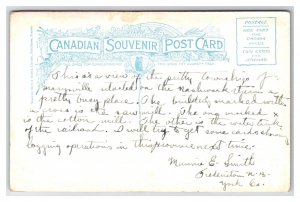 CANADIAN SOUVENIR POST CARD
POSTAGE
This is a view of the pretty township of
Marysville situated on the Nashwaak stream a
pretty busy place. The building marked with
cross is the saw mill. The one marked x
is the cotton mill. The other is the water tank
of the railroad. I will try to get some cards showing
logging operations in this province next time.
Minnie E. Smith
Fredericton N.B.
York Co.